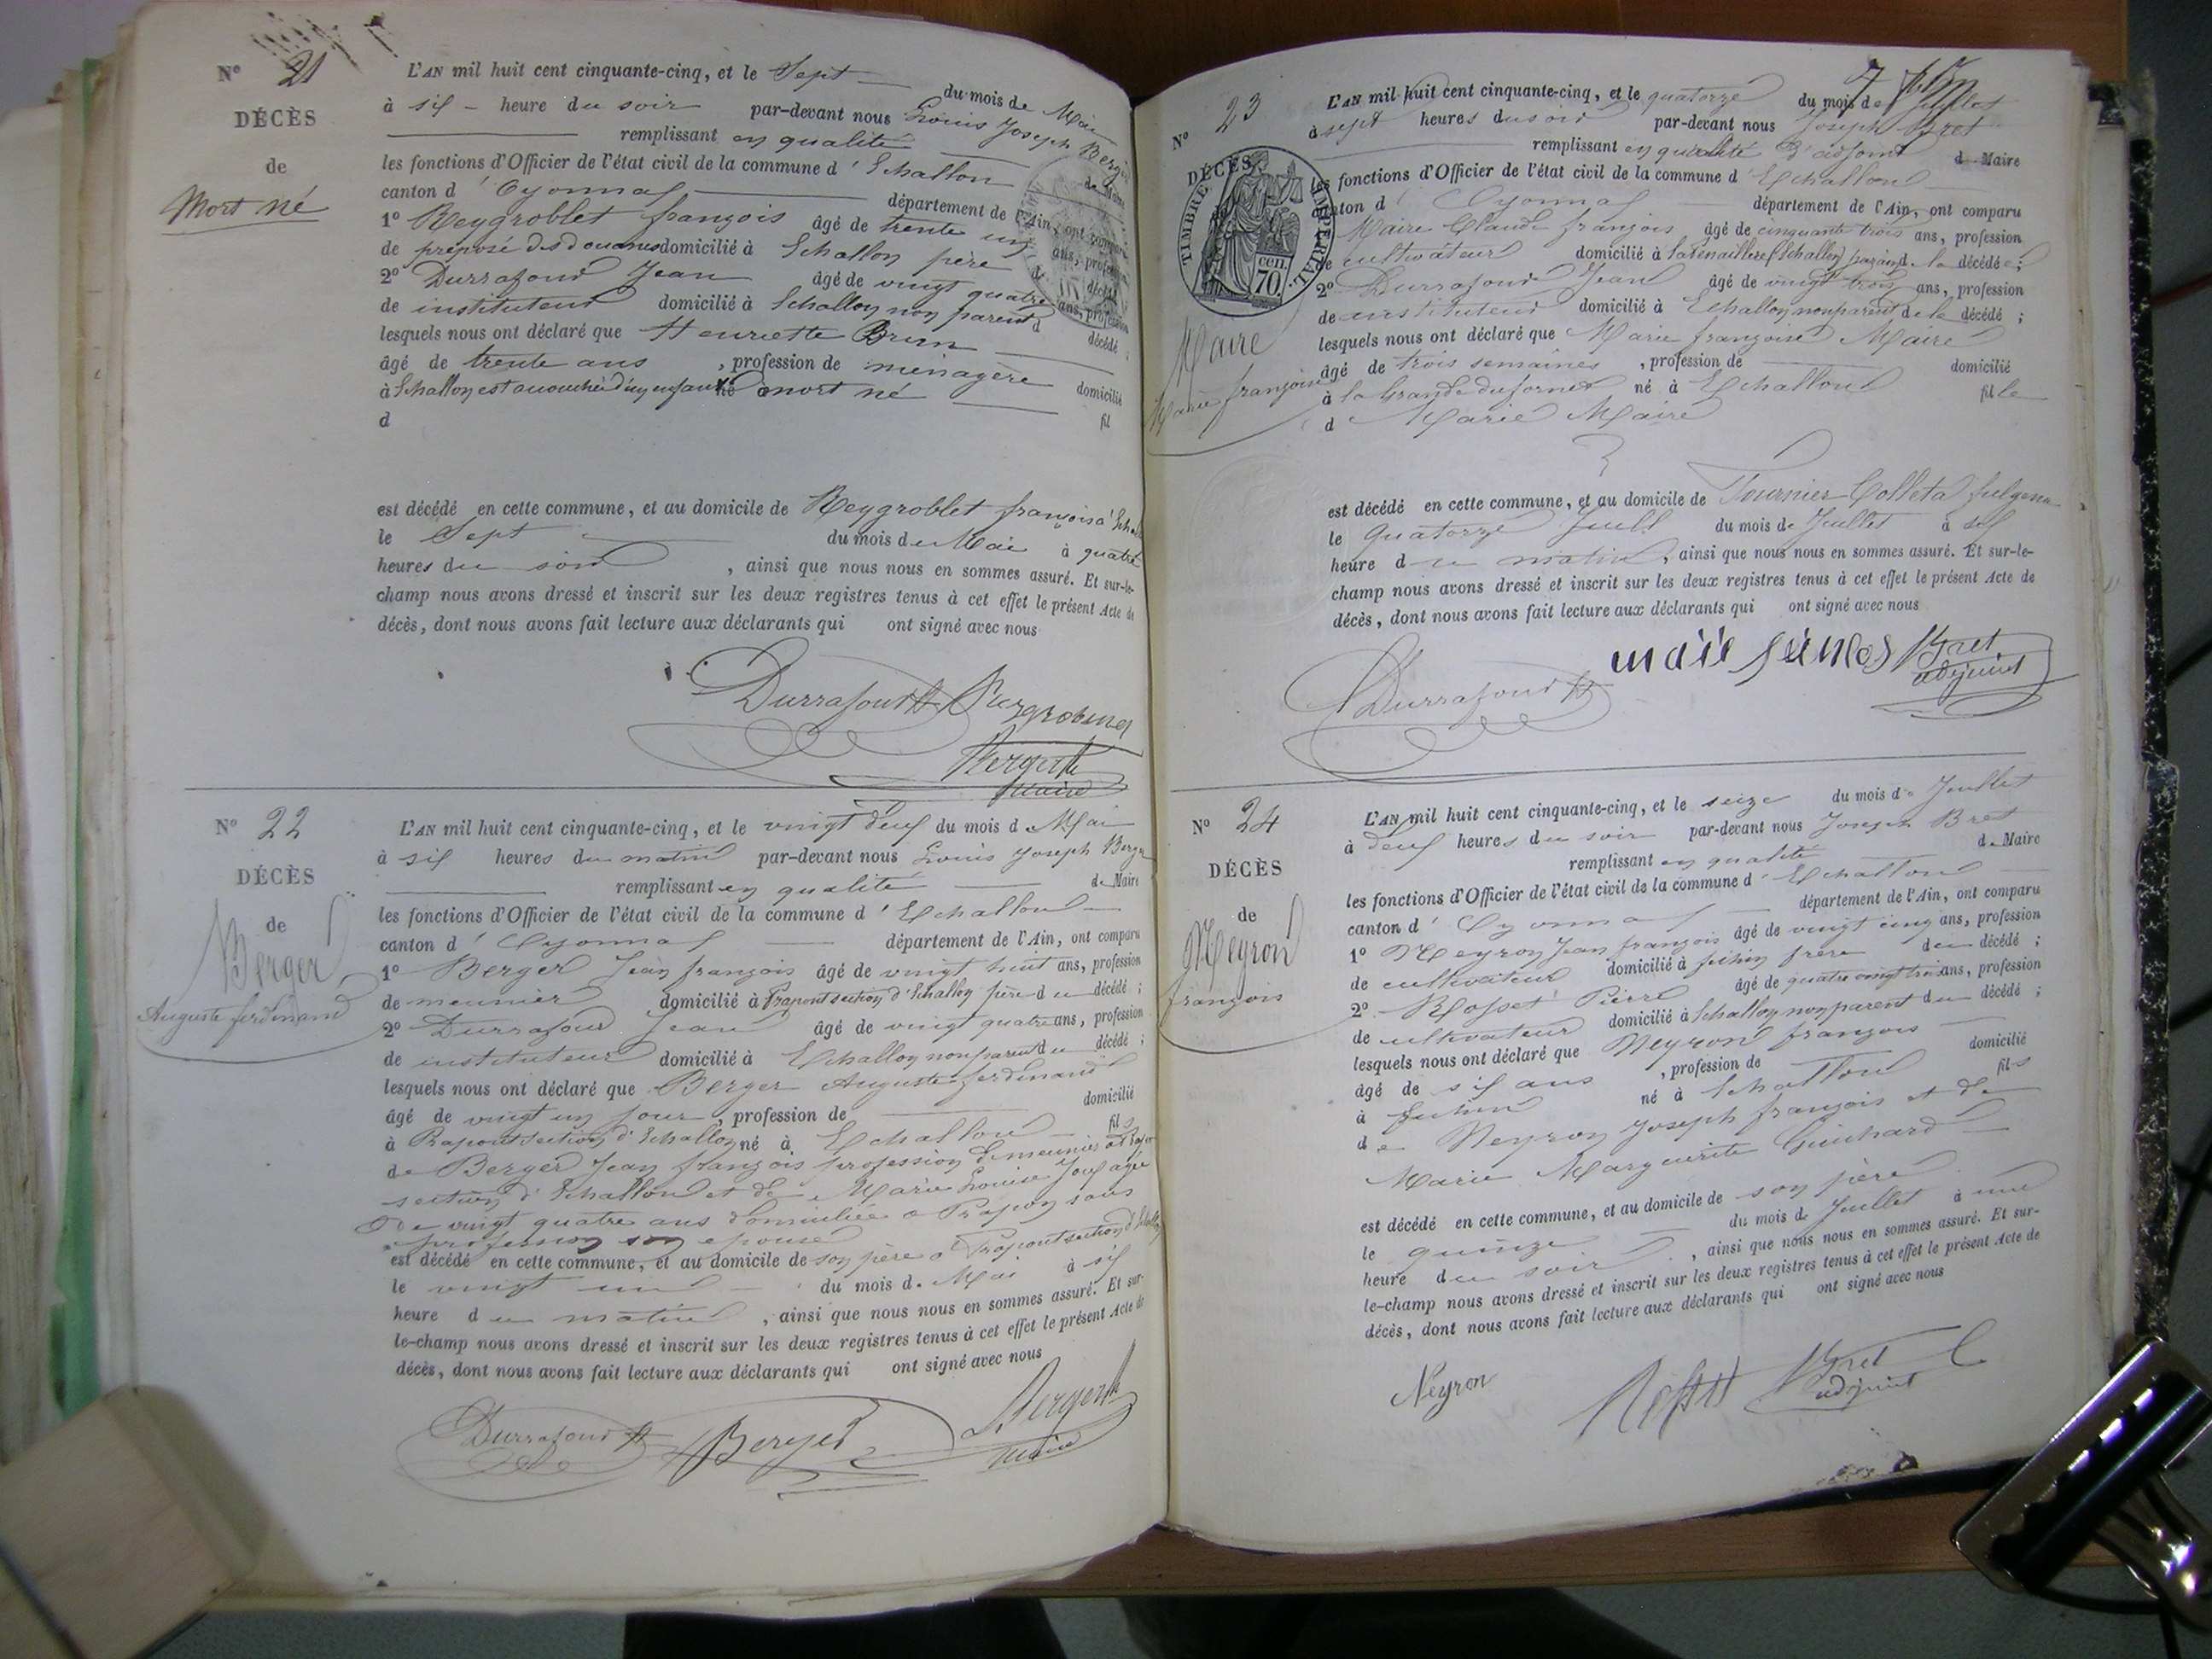 N° 21
DÉCÈS
de
Mort né
L'AN mil huit cent cinquante-cinq, et le Sept du mois de Mai
à six heure du soir par-devant nous Louis Joseph Berger
remplissant en qualité de Maire
les fonctions d'Officier de l'état civil de la commune d'Echallon
canton d'Oyonnax département de l'Ain, ont comparu
1° Reygroblet françois âgé de trente un ans, profession
de préposé des douanes domicilié à Echallon père d décédé
2° Durrafour Jean âgé de vingt quatre ans, profession
de instituteur domicilié à Echallon non parent d décédé ;
lesquels nous ont déclaré que Henriette Brun
âgé de trente ans , profession de ménagère domicilié
à Echallon est accouchée d'un enfant né à mort né fil
d
est décédé en cette commune, et au domicile de Reygroblet françois à
le Sept du mois de Mai à quatre
heures du soir , ainsi que nous nous en sommes assuré. Et sur-le-
champ nous avons dressé et inscrit sur les deux registres tenus à cet effet le présent Acte de
décès, dont nous avons fait lecture aux déclarants qui ont signé avec nous
Durrafour
maire
N° 22
DÉCÈS
de
Berger
Auguste ferdinand
L'AN mil huit cent cinquante-cinq, et le vingt deux du mois d Mai
à six heures du matin par-devant nous Louis Joseph Berger
remplissant en qualité de Maire
les fonctions d'Officier de l'état civil de la commune d'Echallon
canton d'Oyonnax département de l'Ain, ont comparu
1° Berger Jean françois âgé de vingt huit ans, profession
de meunier domicilié à Prapont section d'Echallon père du décédé ;
2° Durrafour Jean âgé de vingt quatre ans, profession
de instituteur domicilié à Echallon non parent du décédé ;
lesquels nous ont déclaré que Berger Auguste ferdinand
âgé de vingt un jour , profession de domicilié
à Prapont section d'Echallon né à Echallon fils
de Berger Jean françois profession de meunier
section d'Echallon et de Marie Louise âgée
de vingt quatre ans domiciliée à Prapon sans
profession son épouse
est décédé en cette commune, et au domicile de son père à Prapont section d'Echallon
le vingt un du mois d. Mai à six
heure du matin , ainsi que nous nous en sommes assuré. Et sur-
le-champ nous avons dressé et inscrit sur les deux registres tenus à cet effet le présent Acte de
décès, dont nous avons fait lecture aux déclarants qui ont signé avec nous
Durrafour Berger
maire
7
N° 23
DÉCÈS
TIMBRE IMPERIAL
70 cen.
Maire
Marie françoise
L'AN mil huit cent cinquante-cinq, et le quatorze du mois de Juillet
à sept heures du soir par-devant nous Joseph Bret
remplissant en qualité d'adjoint d. Maire
les fonctions d'Officier de l'état civil de la commune d'Echallon
canton d'Oyonnax département de l'Ain, ont comparu
Maire Claude françois âgé de cinquante trois ans, profession
de cultivateur domicilié à (Echallon) d. la décédée ;
2° Durrafour Jean âgé de vingt trois ans, profession
de instituteur domicilié à Echallon non parent de la décédé ;
lesquels nous ont déclaré que Marie françoise Maire
âgé de trois semaines , profession de domicilié
à la né à Echallon fille
d Marie Maire
est décédé en cette commune, et au domicile de Tournier Colleta
le quatorze Juill du mois de Juillet à six
heure du matin , ainsi que nous nous en sommes assuré. Et sur-le-
champ nous avons dressé et inscrit sur les deux registres tenus à cet effet le présent Acte de
décès, dont nous avons fait lecture aux déclarants qui ont signé avec nous
Durrafour Bret
adjoint
N° 24
DÉCÈS
de
Neyron
françois
L'AN mil huit cent cinquante-cinq, et le seize du mois d. Juillet
à deux heures du soir par-devant nous Joseph Bret
remplissant en qualité d. Maire
les fonctions d'Officier de l'état civil de la commune d'Echallon
canton d'Oyonnax département de l'Ain, ont comparu
1° Neyron Jean françois âgé de vingt cinq ans, profession
de cultivateur domicilié à frère du décédé ;
2° Rosset Pierre âgé de quatre vingt trois ans, profession
de cultivateur domicilié à Echallon non parent du décédé ;
lesquels nous ont déclaré que Neyron françois
âgé de six ans , profession de domicilié
à né à Echallon fils
de Neyron Joseph françois et de
Marie Marguerite Guichard
est décédé en cette commune, et au domicile de son père
le quinze du mois de Juillet à une
heure du soir , ainsi que nous nous en sommes assuré. Et sur-
le-champ nous avons dressé et inscrit sur les deux registres tenus à cet effet le présent Acte de
décès, dont nous avons fait lecture aux déclarants qui ont signé avec nous
Neyron Bret
adjoint